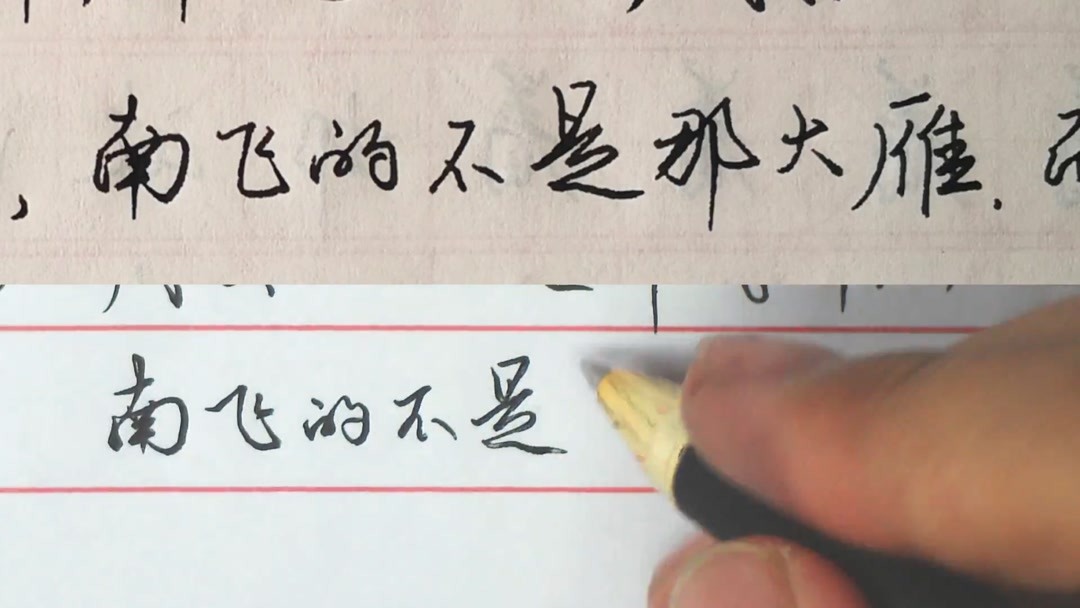 ，南飞的不是那大雁.
南飞的不是